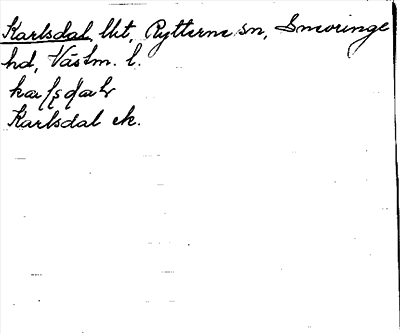 Karlsdal, lht, Rytterne sn, Snevringe
hd, Västm. l.
Karlsdal ek.